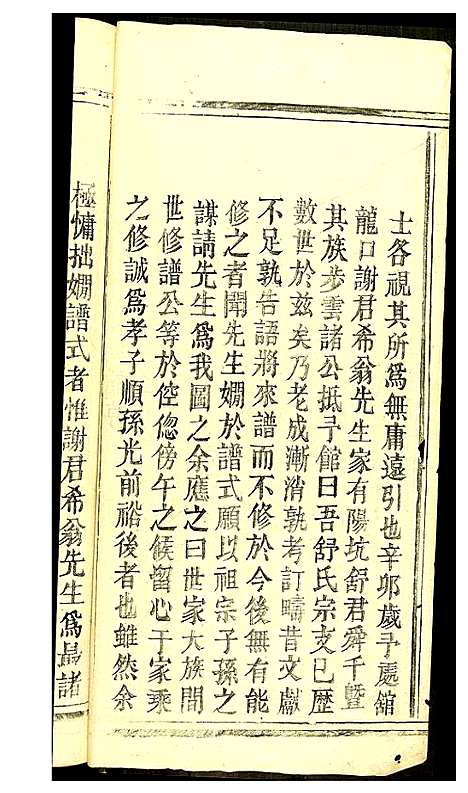 士各視其所爲無庸遠引也辛卯歲予處舘
龍口謝君希翁先生家有陽坑舒君舜千曁
其族步雲諸公抵予館曰吾舒氏宗支已歷
數世於茲矣乃老成漸消孰考訂疇昔文獻
不足孰告語將來譜而不修於今後無有能
修之者聞先生嫺於譜式願以祖宗子孫之
謀請先生爲我圖之余應之曰世家大族間
世修譜公等於倥偬傍午之候留心于家乘
之修誠爲孝子順孫光前裕後者也雖然余
極慵拙嫺譜式者惟謝君希翁先生爲最諸